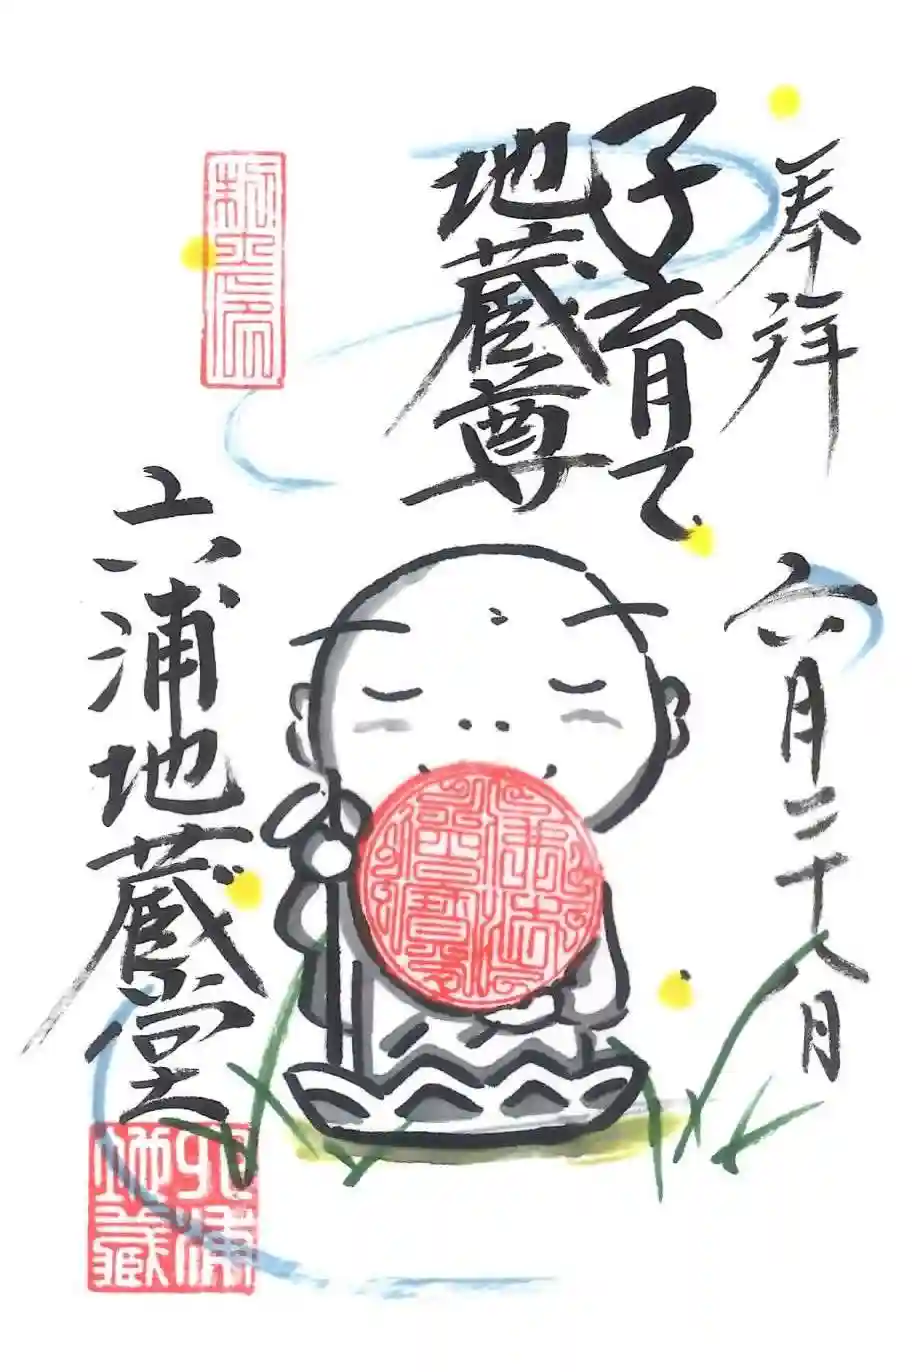 奉拝
六月二十八月
子育て
地蔵尊
六浦地蔵堂
六浦
地蔵